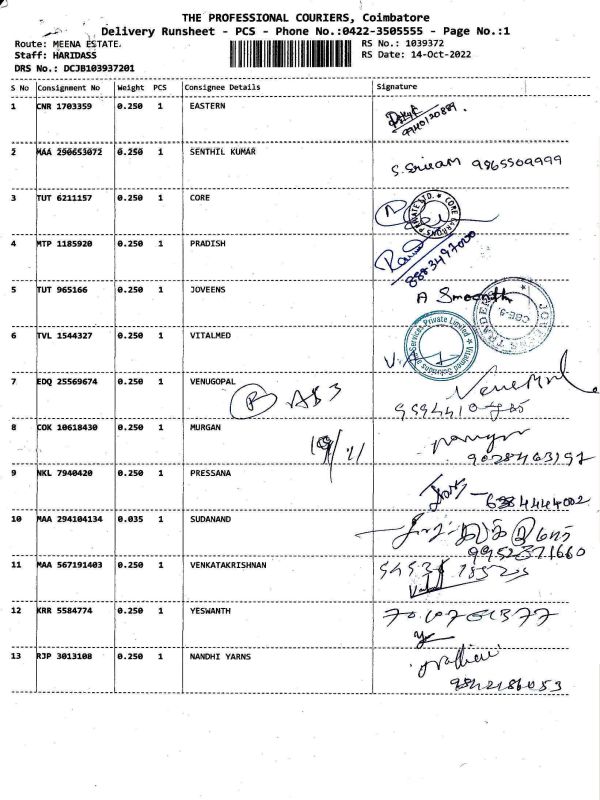 THE PROFESSIONAL COURIERS, Coimbatore
Delivery Runsheet - PCS - Phone No.:0422-3505555 - Page No.:1
Route: MEENA ESTATE. RS No.: 1039372
Staff: HARIDASS RS Date: 14-Oct-2022
DRS No.: DCJB103937201
S No Consignment No Weight PCS Consignee Details Signature
1 CNR 1703359 0.250 1 EASTERN
2 MAA 290653072 0.250 1 SENTHIL KUMAR S. Sriram 9865509999
3 TUT 6211157 0.250 1 CORE
4 MTP 1185920 0.250 1 PRADISH
8883497000
5 TUT 965166 0.250 1 JOVEENS A
6 TVL 1544327 0.250 1 VITALMED
7 EDQ 25569674 0.250 1 VENUGOPAL
B
8 COK 10618430 0.250 1 MURGAN
9 NKL 7940420 0.250 1 PRESSANA
6284444002
10 MAA 294104134 0.035 1 SUDANAND
9952371660
11 MAA 567191403 0.250 1 VENKATAKRISHNAN
12 KRR 5584774 0.250 1 YESWANTH
13 RJP 3013108 0.250 1 NANDHI YARNS
9842186053